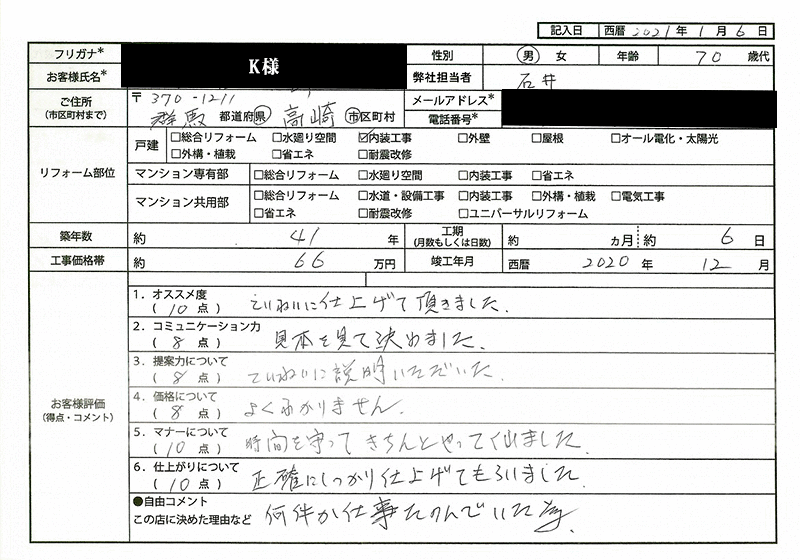 記入日 西暦 2021 年 1 月 6 日
フリガナ* K様 性別 男 女 年齢 70 歳代
お客様氏名* 弊社担当者 石井
ご住所 〒370-1211 メールアドレス*
(市区町村まで) 群馬 都道府県 高崎 市区町村 電話番号*
リフォーム部位
戸建 □総合リフォーム □水廻り空間 ☑内装工事 □外壁 □屋根 □オール電化・太陽光
□外構・植栽 □省エネ □耐震改修
マンション専有部 □総合リフォーム □水廻り空間 □内装工事 □省エネ
マンション共用部 □総合リフォーム □水道・設備工事 □内装工事 □外構・植栽 □電気工事
□省エネ □耐震改修 □ユニバーサルリフォーム
築年数 約 41 年 工期 (月数もしくは日数) 約 ヵ月 約 6 日
工事価格帯 約 66 万円 竣工年月 西暦 2020 年 12 月
お客様評価
(得点・コメント)
1.オススメ度
(10点) ていねいに仕上げて頂きました.
2.コミュニケーション力
(8点) 見本を見て決めました.
3.提案力について
(8点) ていねいに説明いただいた.
4.価格について
(8点) よくわかりません.
5.マナーについて
(10点) 時間を守ってきちんとやって
6.仕上がりについて
(10点) 正確にしっかり仕上げてもらいました.
●自由コメント
この店に決めた理由など 何件か仕事たのんでいた為.